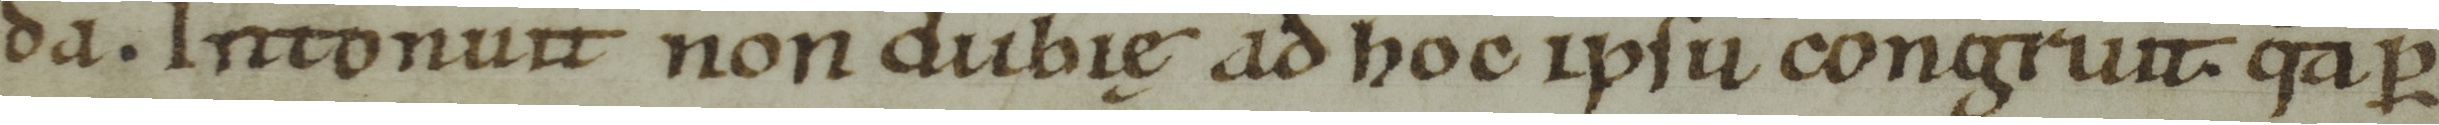 da. Intonuit non dubię ad hoc ipsū congruit. qa ꝑ